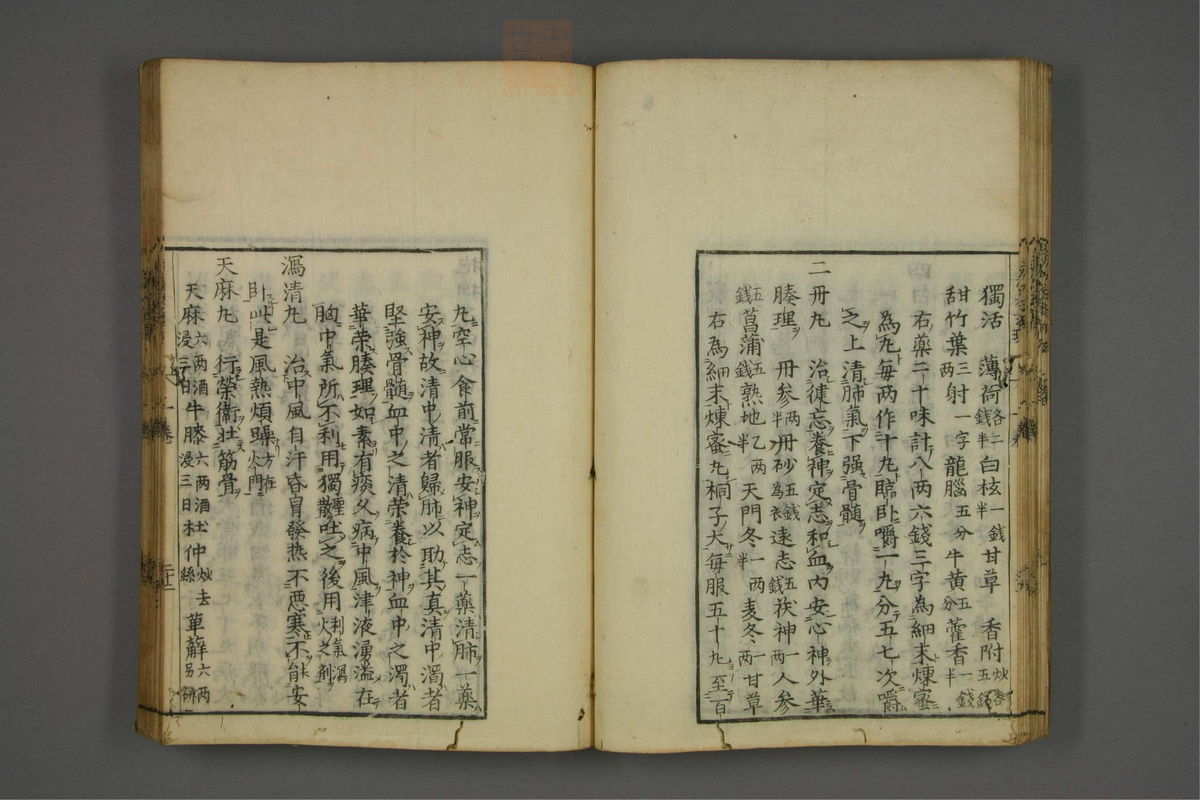 獨活 薄荷各二錢半白枝一錢半甘草 香附炒各五錢
甜竹葉三兩射一字龍腦五分牛黄五分藿香一錢半
右藥二十味計八兩六錢三字為細末煉蜜
為丸毎両作十丸臨卧嚼一丸分五七次嚼
之上清肺氣下强骨髓
二丹丸 治徤忘養神定志和血内安心神外華
腠理 丹参両半丹砂五錢為衣遠志五錢茯神一両人参
五錢菖蒲五錢熟地乙両半天門冬一両半麦冬一両甘草
右為細末煉蜜丸桐子大毎服五十丸至百
丸空心食前常服安神定志一藥清肺一藥
安神故清中清者歸肺以助其真清中濁者
堅強骨髓血中之清榮養於神血中之濁者
華栄腠理如素有痰久病中風津液湧溢在
胸中氣所不利用獨聖散吐之後用利氣瀉火之剤
瀉清丸 治中風自汗昏冒發热不惡寒不能安
卧此是風熱煩躁方在火門
天麻丸 行榮衞壮筋骨
天麻六両酒浸三日牛膝六両酒浸三日杜仲炒去絲萆薢六両另研